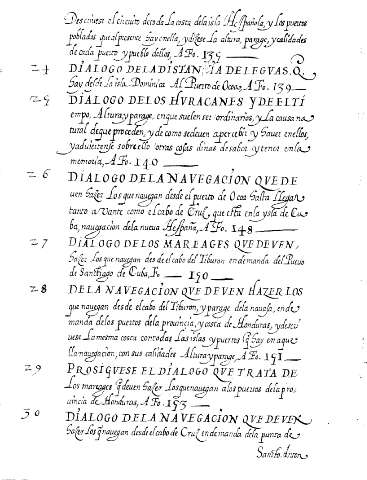 Descrivese el circuito dela costa dela isla Hespañola, y los puertos
poblados que al presente hay en ella, y dizese La altura, parage, y calidades
de cada puerto y pueblo dellos, A Fo. 135
24 DIALOGO DE LA DISTANCIA DE LEGVAS. Q
hay desde La isla Dominica Al Puerto de Ocoa, A Fo. 139
25 DIALOGO DE LOS HVRACANES Y DE EL TI
empo, Altura y parage, en que suelen ser ordinarios, y La causa na
tural de que proceden, y de como se deuen apercebir y hauer en ellos,
y aduiertense sobre ello otras cosas dinas de saber y tener en la
memoria, A Fo. 140
26 DIALOGO DE LA NAVEGACION QVE DE
uen hazer Los que nauegan desde el puerto de Ocoa hasta Llegar
tanto a Vante como el cabo de Cruz, que esta en la ysla de Cu
ba, nauegacion dela nueua Hespaña, A Fo. 148
27 DIALOGO DE LOS MAREAGES QVE DEVEN
hazer los que nauegan desde el cabo del Tiburon en demanda del Puerto
de Santhiago de Cuba, Fo 150
28 DE LA NAVEGACION QVE DEVEN HAZER LOS
que nauegan desde el cabo del Tiburon, y parage dela nauasa, en de
manda delos puertos dela prouincia, y costa de Honduras, y descri
uese La mesma costa con todas Las islas y puertos q hay en aque
lla nauegacion, con sus calidades Altura y parage, A Fo. 151
29 PROSIGVESE EL DIALOGO QVE TRATA DE
Los mareages q deuen hazer Los que nauegan a los puertos dela pro
uincia de Honduras, A Fo. 153
30 DIALOGO DE LA NAVEGACION QVE DEVEN
hazer Los q nauegan desde el cabo de Cruz en demanda dela punta de
Santo Anton